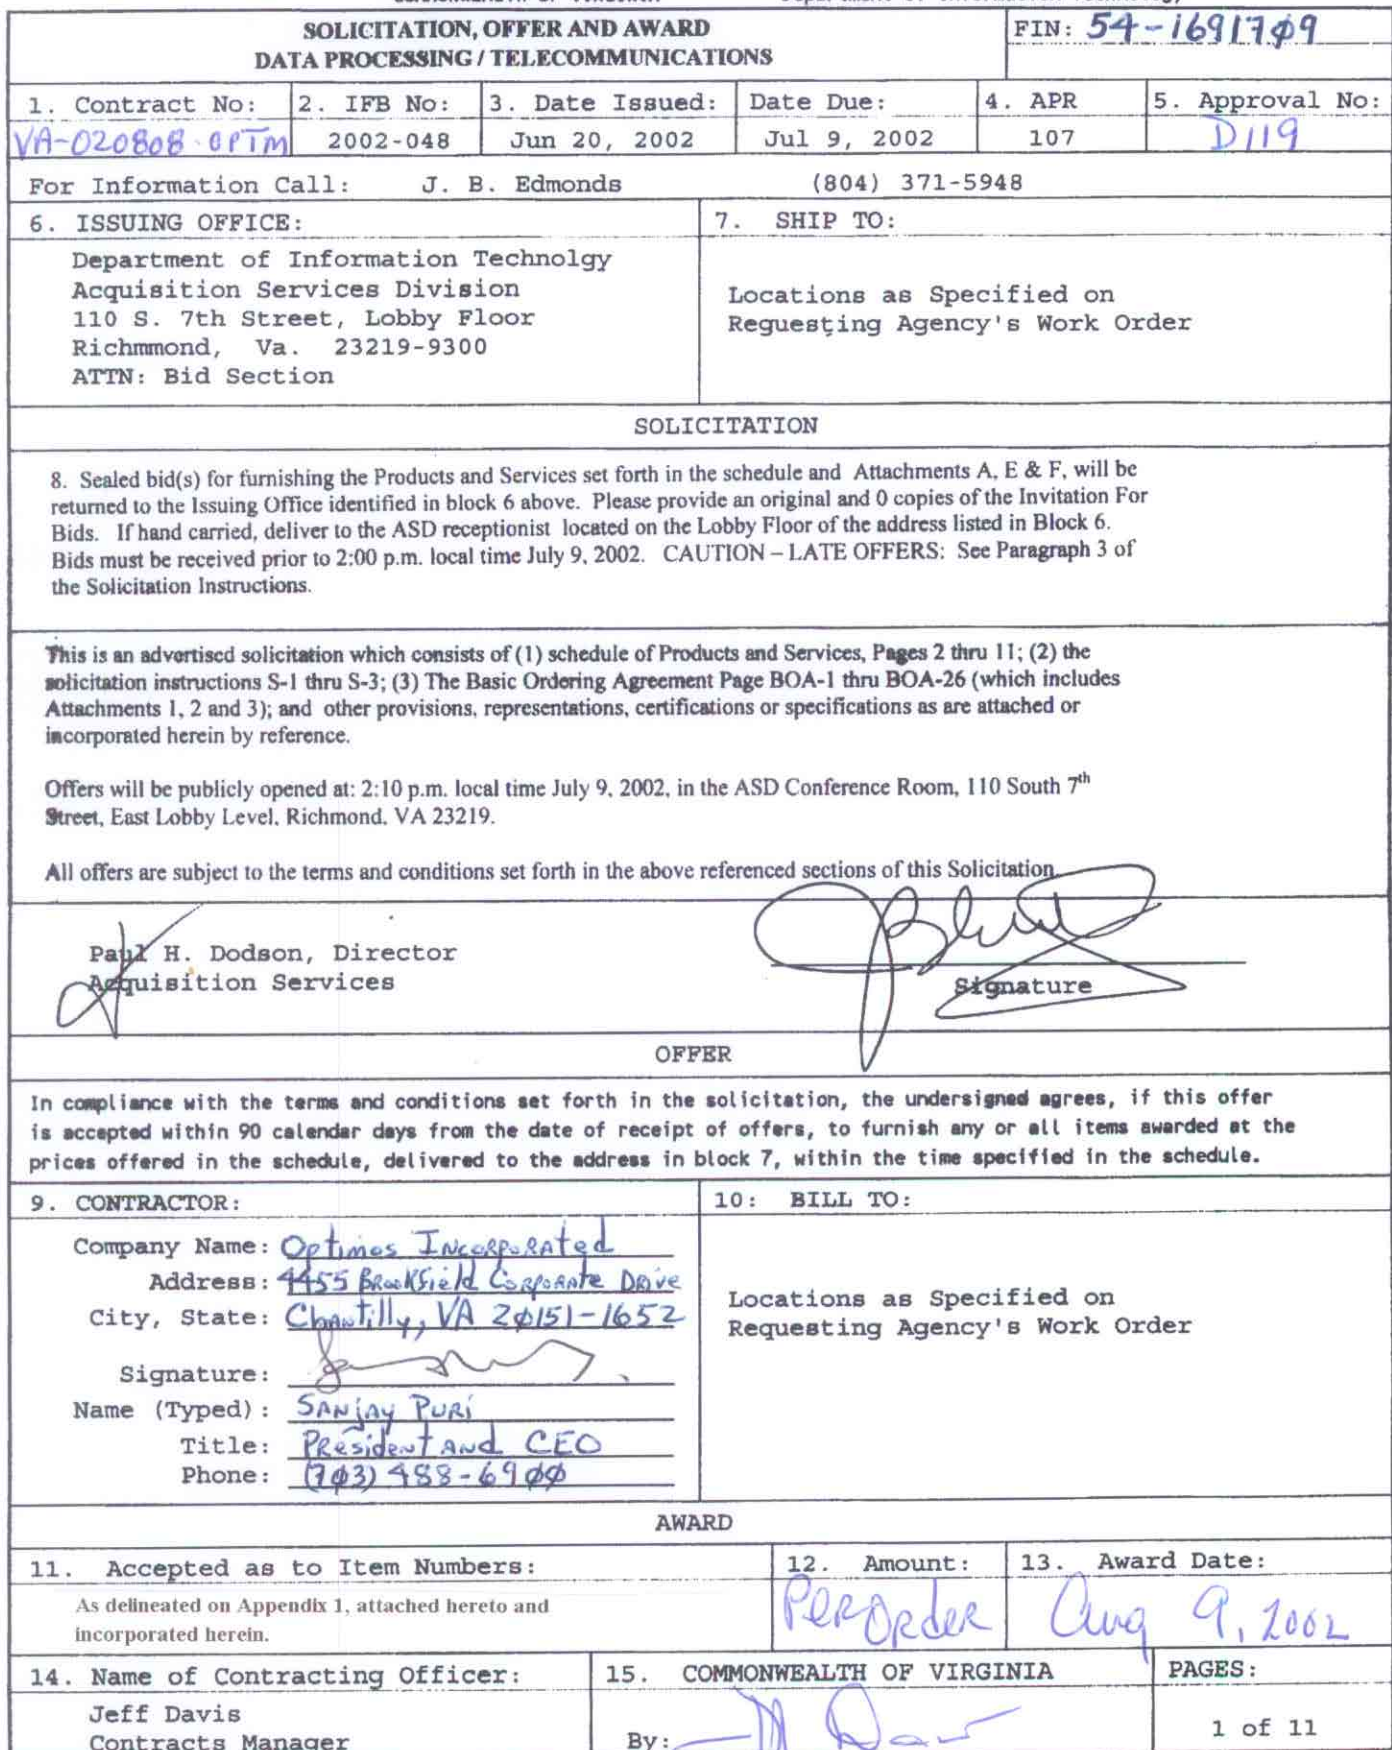 SOLICITATION, OFFER AND AWARD
DATA PROCESSING / TELECOMMUNICATIONS
FIN: 54-1691709
1. Contract No:
2. IFB No:
3. Date Issued:
Date Due:
4. APR
5. Approval No:
VA-020808-OPTM
2002-048
Jun 20, 2002
Jul 9, 2002
107
D119
For Information Call: J. B. Edmonds (804) 371-5948
6. ISSUING OFFICE:
Department of Information Technolgy
Acquisition Services Division
110 S. 7th Street, Lobby Floor
Richmmond, Va. 23219-9300
ATTN: Bid Section
7. SHIP TO:
Locations as Specified on
Requesting Agency's Work Order
SOLICITATION
8. Sealed bid(s) for furnishing the Products and Services set forth in the schedule and Attachments A, E & F, will be
returned to the Issuing Office identified in block 6 above. Please provide an original and 0 copies of the Invitation For
Bids. If hand carried, deliver to the ASD receptionist located on the Lobby Floor of the address listed in Block 6.
Bids must be received prior to 2:00 p.m. local time July 9, 2002. CAUTION – LATE OFFERS: See Paragraph 3 of
the Solicitation Instructions.
This is an advertised solicitation which consists of (1) schedule of Products and Services, Pages 2 thru 11; (2) the
solicitation instructions S-1 thru S-3; (3) The Basic Ordering Agreement Page BOA-1 thru BOA-26 (which includes
Attachments 1, 2 and 3); and other provisions, representations, certifications or specifications as are attached or
incorporated herein by reference.
Offers will be publicly opened at: 2:10 p.m. local time July 9, 2002, in the ASD Conference Room, 110 South 7th
Street, East Lobby Level, Richmond, VA 23219.
All offers are subject to the terms and conditions set forth in the above referenced sections of this Solicitation
Paul H. Dodson, Director
Acquisition Services
Signature
OFFER
In compliance with the terms and conditions set forth in the solicitation, the undersigned agrees, if this offer
is accepted within 90 calendar days from the date of receipt of offers, to furnish any or all items awarded at the
prices offered in the schedule, delivered to the address in block 7, within the time specified in the schedule.
9. CONTRACTOR:
Company Name: Optimos Incorporated
Address: 4455 Brookfield Corporate Drive
City, State: Chantilly, VA 20151-1652
Signature:
Name (Typed): Sanjay Puri
Title: President and CEO
Phone: (703) 488-6900
10: BILL TO:
Locations as Specified on
Requesting Agency's Work Order
AWARD
11. Accepted as to Item Numbers:
As delineated on Appendix 1, attached hereto and
incorporated herein.
12. Amount:
Per Order
13. Award Date:
Aug 9, 2002
14. Name of Contracting Officer:
Jeff Davis
Contracts Manager
15. COMMONWEALTH OF VIRGINIA
By:
PAGES:
1 of 11